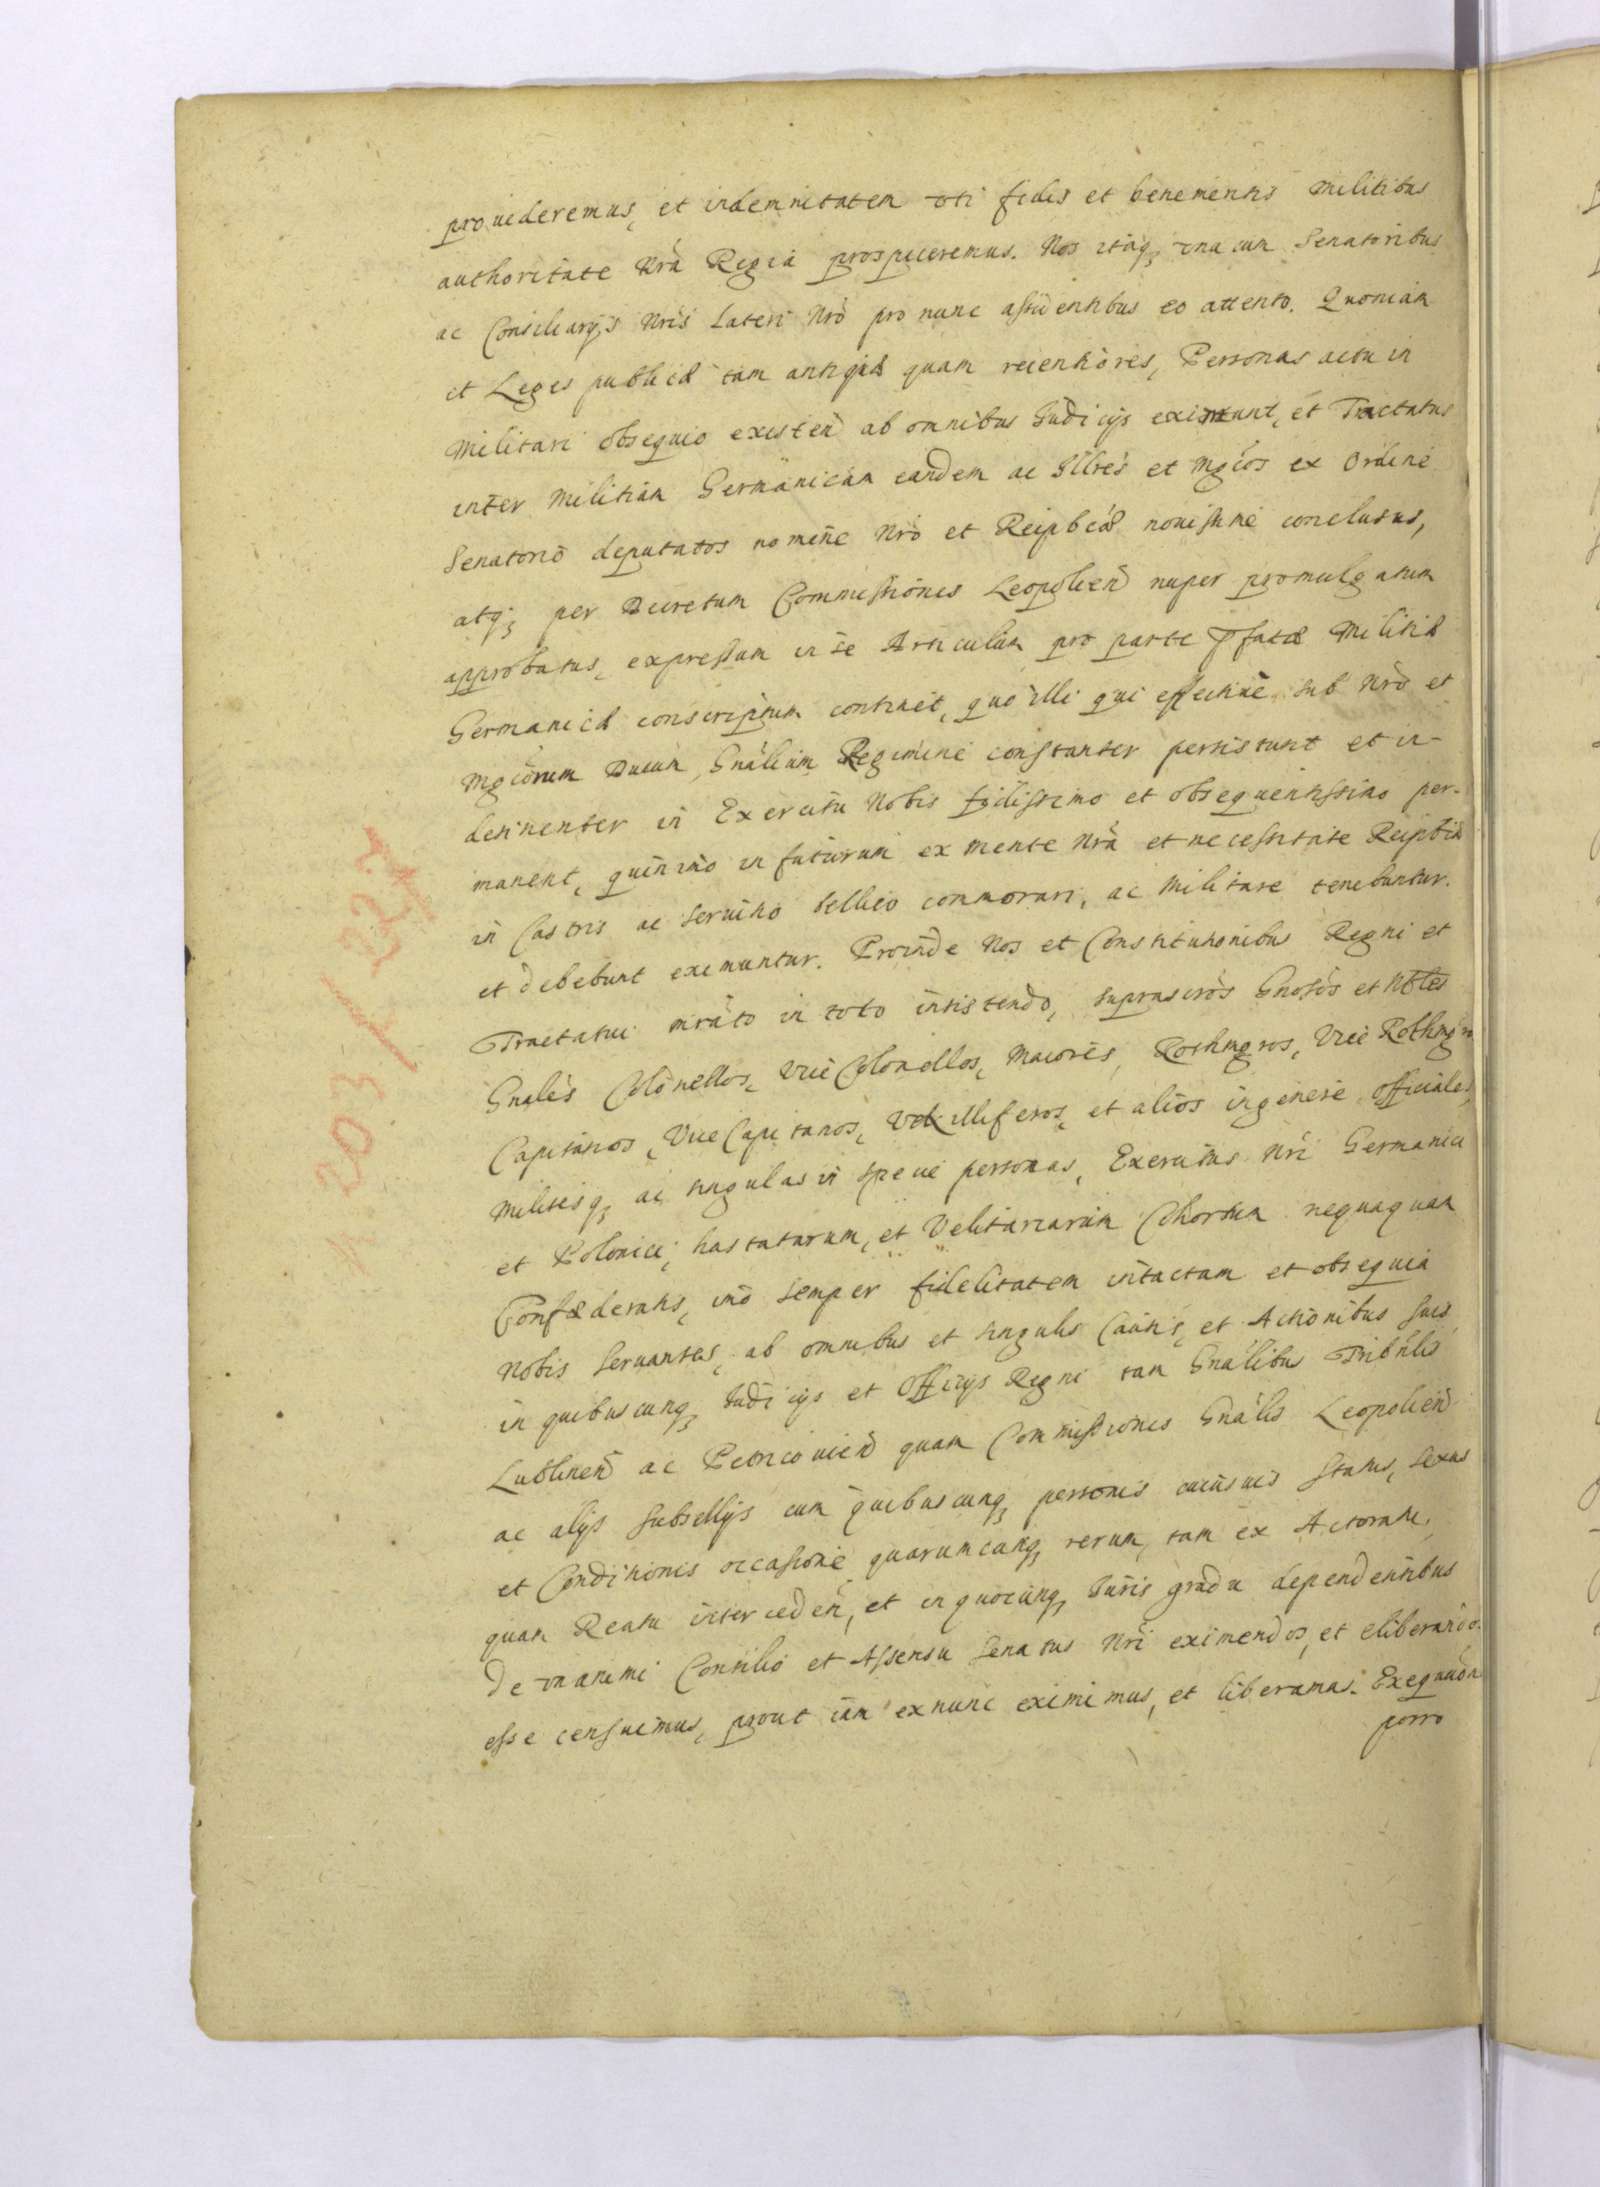 prouideremus, et indemnitatem uti fidis et benemeritis militibus
authoritate Nrã Regia prospiceremus. Nos itaq; una cum Senatoribus
ac Consiliarijs Nris Lateri Nrõ pro nunc assidentibus eo attento. Quoniam
et Leges publicæ tam antiquæ quam recentiores, Personas actu in
Militari obsequio existeñ ab omnibus Iudicijs eximunt, et Tractatus
inter Militiam Germanicam eandem ac Illres et Mgcos ex Ordine
Senatorio deputatos nomine Nrõ et Reipbcæ nouissime conclusus,
atq; per Decretum Commissionis Leopolieñ nuper promulgatum
approbatus, expressum in se Articulum pro parte pfatæ Militiæ
Germanicæ conscriptum continet, quo illi qui effectiue sub Nrõ et
Mgcorum Ducum Gnalium Regimine constanter persistunt et in-
desinenter in Exercitu Nobis fidissimo et obsequentissimo per-
manent, quinimo in futurum ex mente Nrã et necessitate Reipbcæ
in Castris ac seruitio bellico commorari, ac militare tenebuntur
et debebunt eximuntur. Proinde Nos et Constitutionibus Regni et
Tractatui mrãto in toto insistendo, suprascros Gnosos et Nbles
Gnales Colonellos, Vice Colonellos, Maiores, Rothmgros, Vice Rothmgros
Capitanos, Vice Capitanos, Vexilliferos, et alios in genere Officiales,
Militesq; ac singulas in specie personas, Exercitus Nri Germanici
et Polonici, hastatarum, et Velitariarum Cohortum nequaquam
Confæderatis, imo semper fidelitatem intactam et obsequia
Nobis seruantes, ab omnibus et singulis Causis, et Actionibus suis
in quibuscunq; Iudicijs et Officijs Regni tam Gnalibus Tribnlis
Lublineñ ac Petricouieñ quam Commissionis Gnalis Leopolieñ
ac alijs Subsellijs cum quibuscunq; personis cuiusuis Status, sexus
et Conditionis occasione quarumcunq; rerum, tam ex Actoratu,
quam Reatu intercedeñ, et in quocunq; Iuris gradu dependentibus
de unanimi Consilio et Assensu Senatus Nri eximendos, et eliberandos
esse censuimus, prout iam ex nunc eximimus, et liberamus. Exequuõn
porro